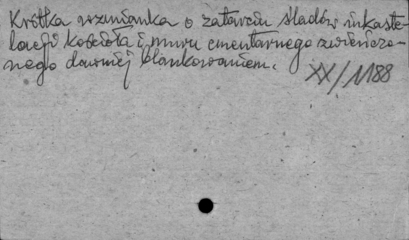 Krótka wzmianka o zatarciu śladów inkaste-
lacji kościoła i muru cmentarnego zwieńczo-
nego dawniej blankowaniem.
XX/1188